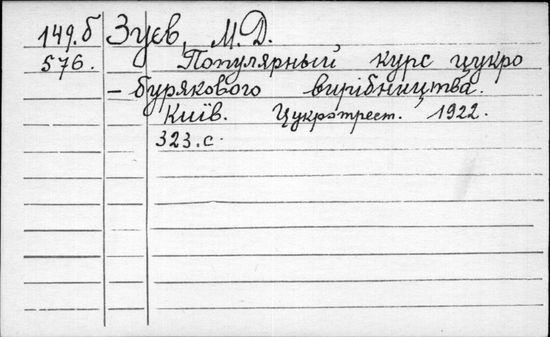 149.б Зуєв, М.Д.
576. Популярный курс цукро
- бурякового вирібництва.
Київ. Цукротрест. 1922.
323.с.